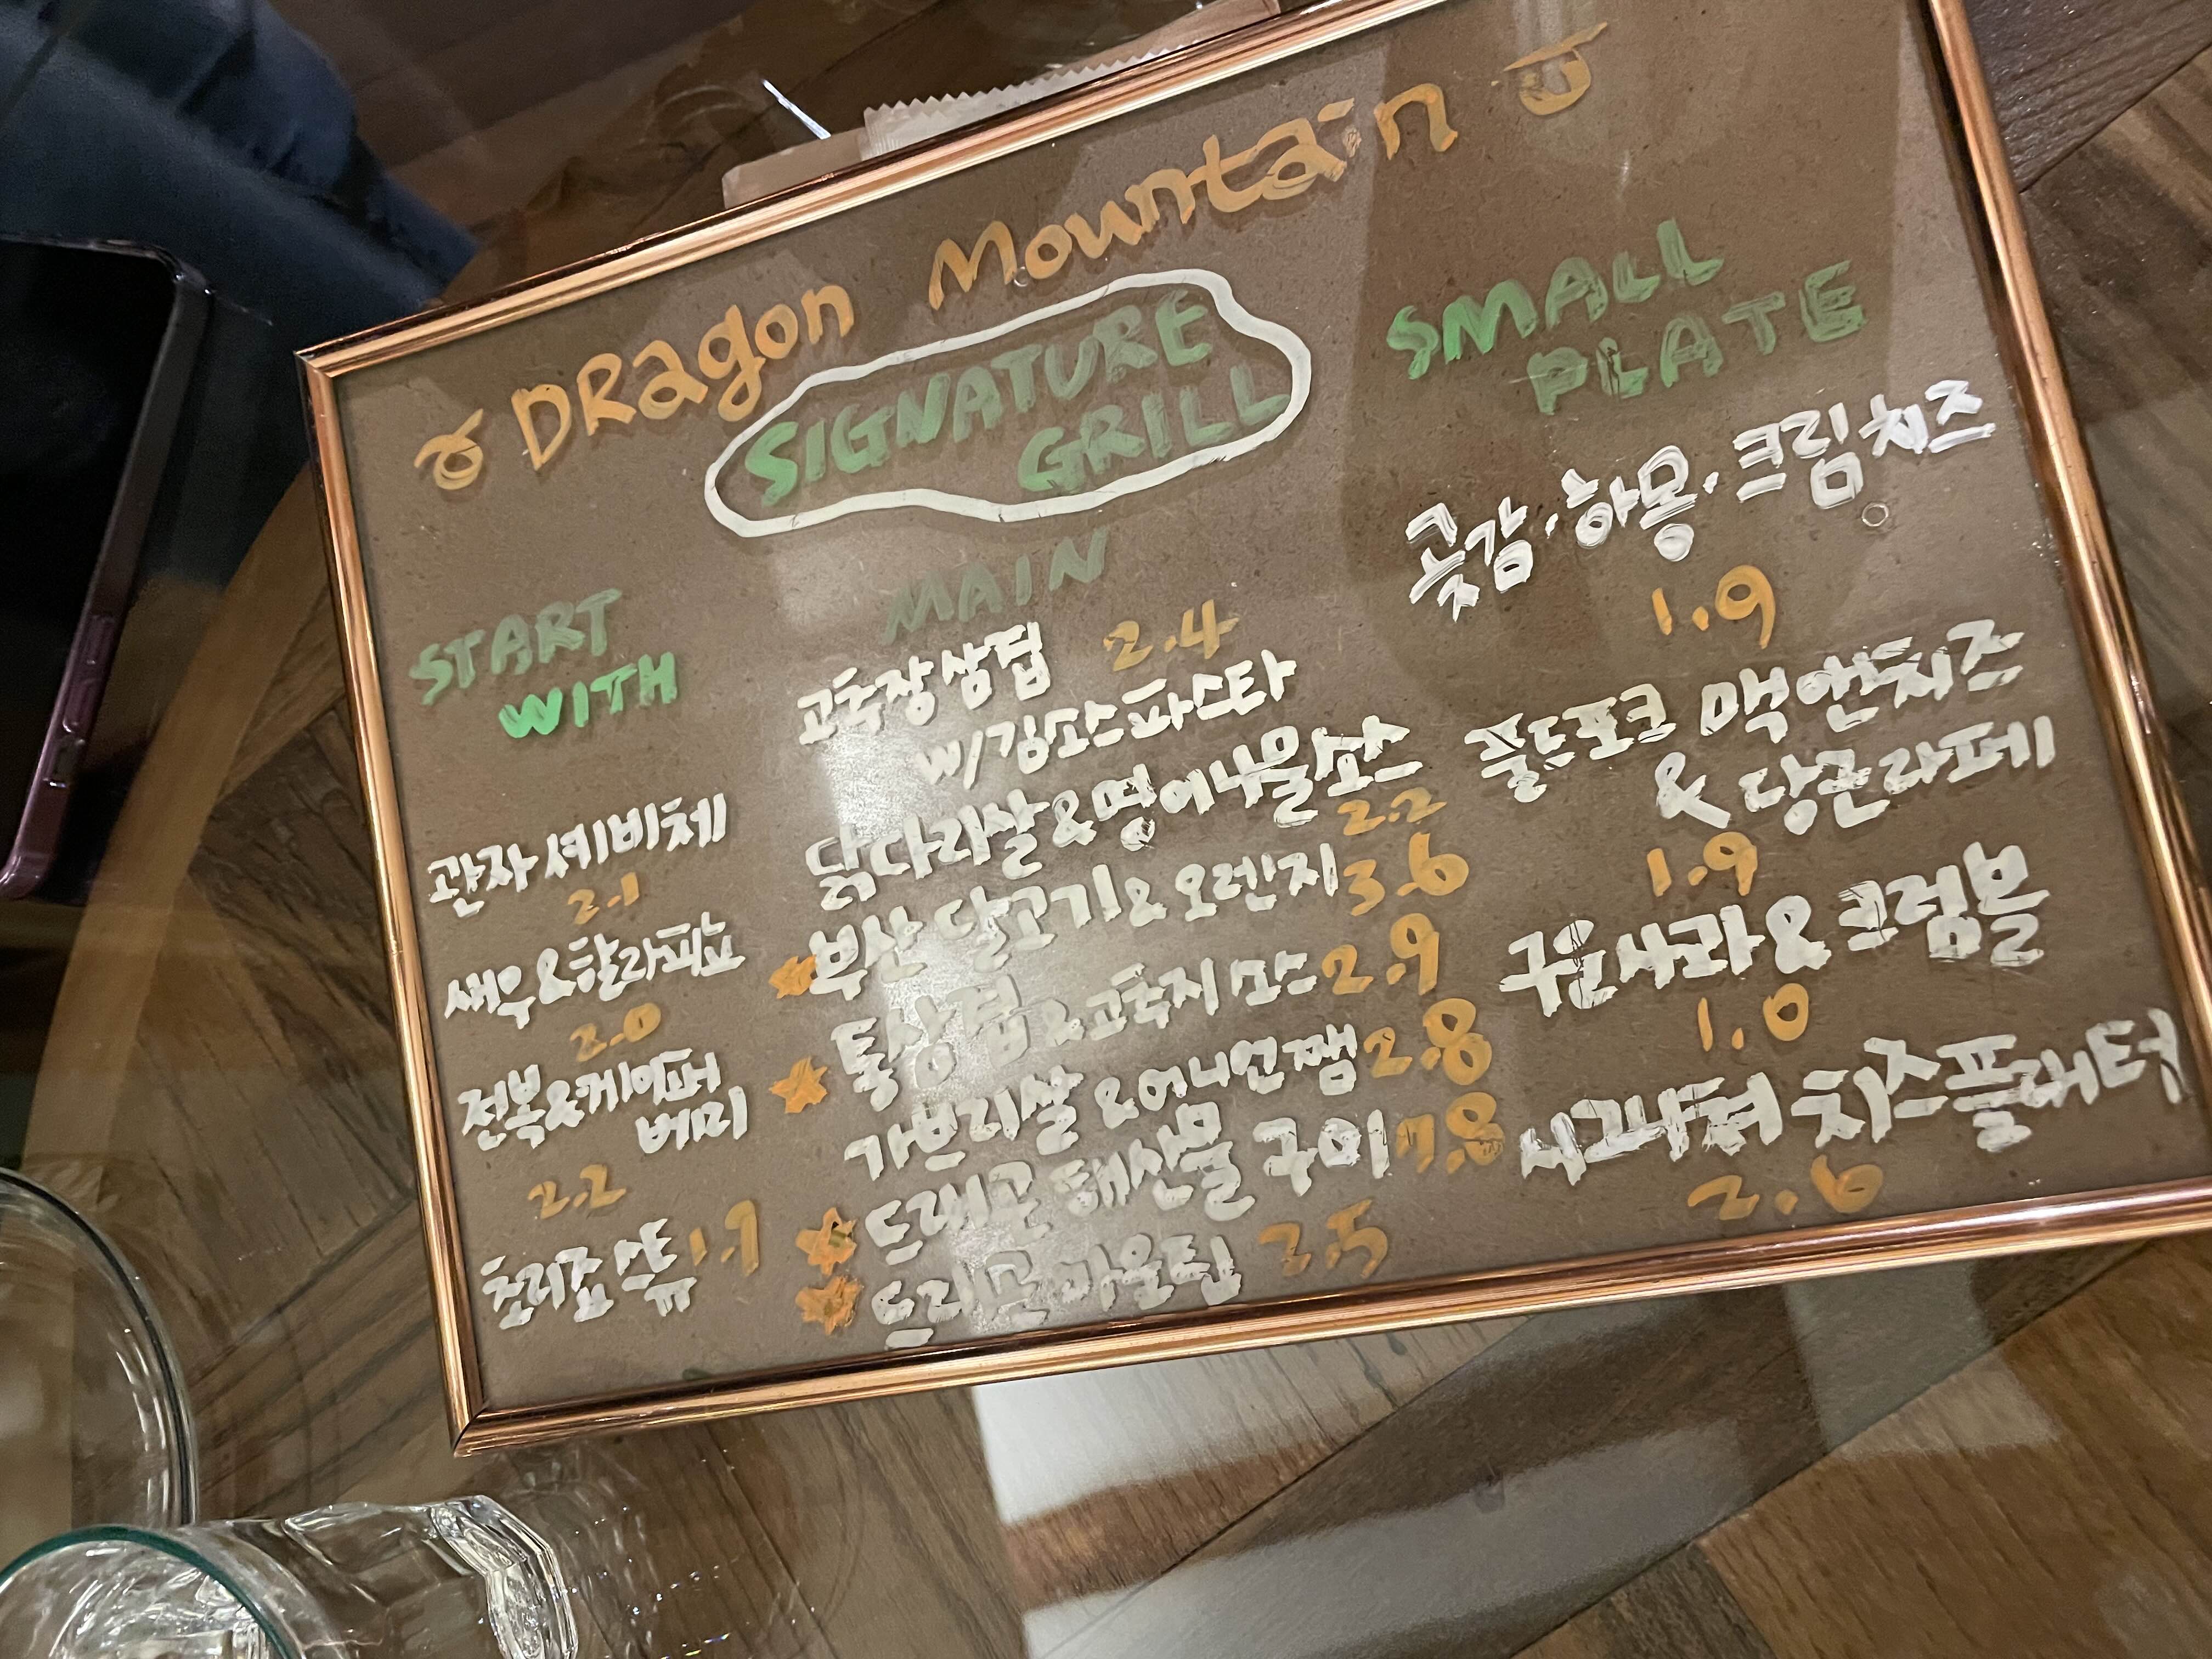 Dragon Mountain
SIGNATURE
GRILL
START
WITH
관자 세비체
2.1
새우&할라피뇨
2.0
전복&케이퍼
베리
2.2
초리조 스튜 1.9
MAIN
고추장 삼겹 2.4
w/김소스파스타
닭다리살&명이나물소스
2.2
부산 달고기&오렌지 3.6
통삼겹&고추지 2.9
가브리살&어니언잼 2.8
드래곤 해산물 구이 7.8
드래곤 마운틴 2.5
SMALL
PLATE
곶감·하몽·크림치즈
1.9
풀드포크 맥앤치즈
&당근라페
1.9
구운사과&크럼블
1.0
샤퀴테리 치즈플래터
2.6